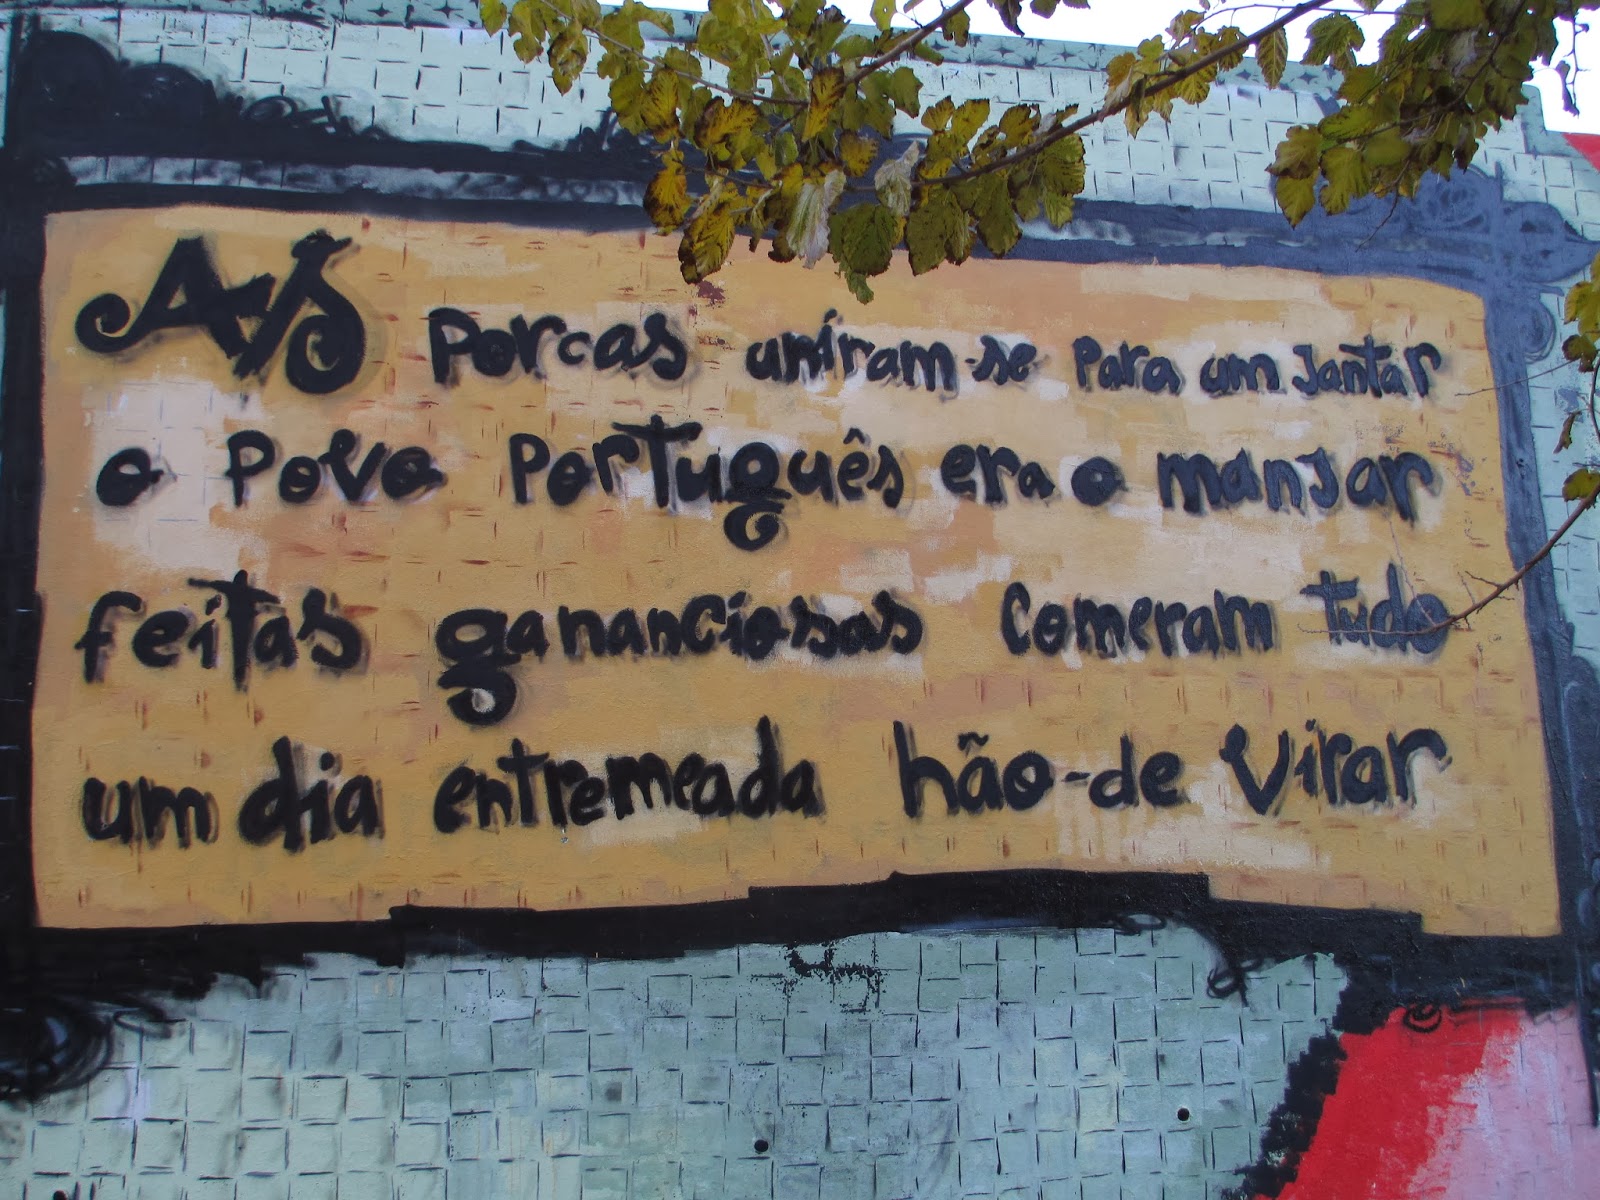 As Porcas uniram-se para um jantar
o povo Português era o manjar
feitas gananciosas comeram tudo
um dia entremeada hão-de virar